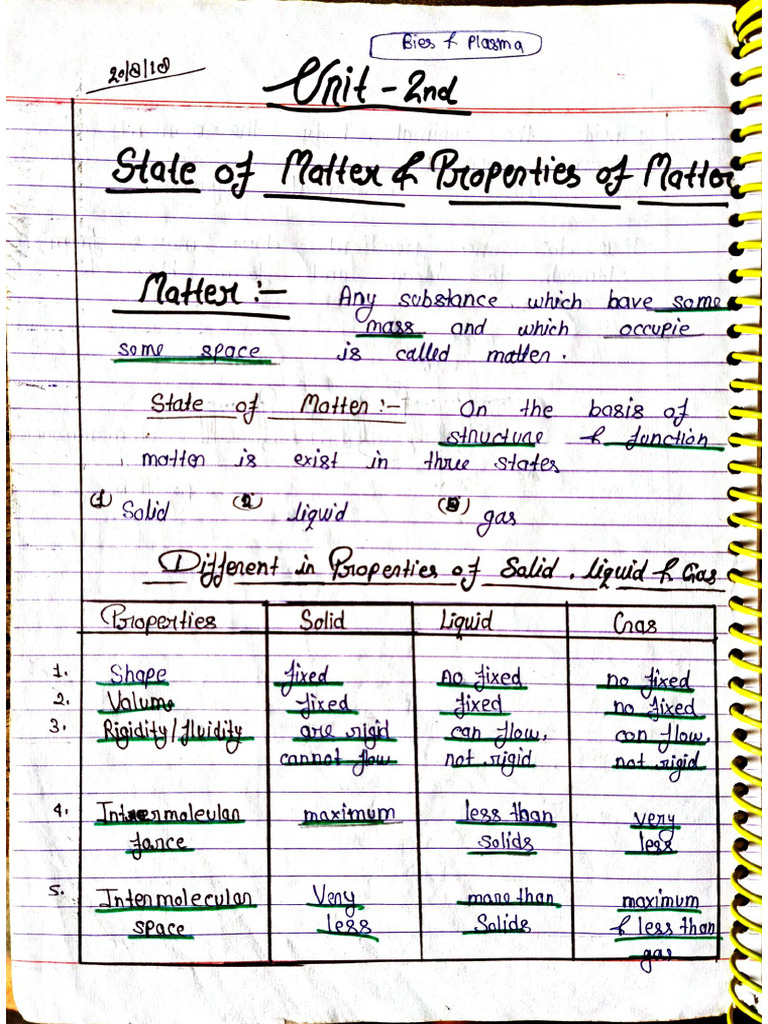 Bies & Plasma
20/8/18
Unit - 2nd
State of Matter & Properties of Matter
Matter :- Any substance which have some
mass and which occupie
some space is called matter.
State of Matter :- On the basis of
structure & function
matter is exist in three states
(1) Solid (2) liquid (3) gas
Different in Properties of Solid, liquid & Gas
Properties Solid Liquid Gas
1. Shape fixed no fixed no fixed
2. Volume fixed fixed no fixed
3. Rigidity/fluidity are rigid can flow, can flow,
cannot flow not rigid not rigid
4. Intermolecular maximum less than very
force solids less
5. Intermolecular Very more than maximum
space less Solids & less than
gas